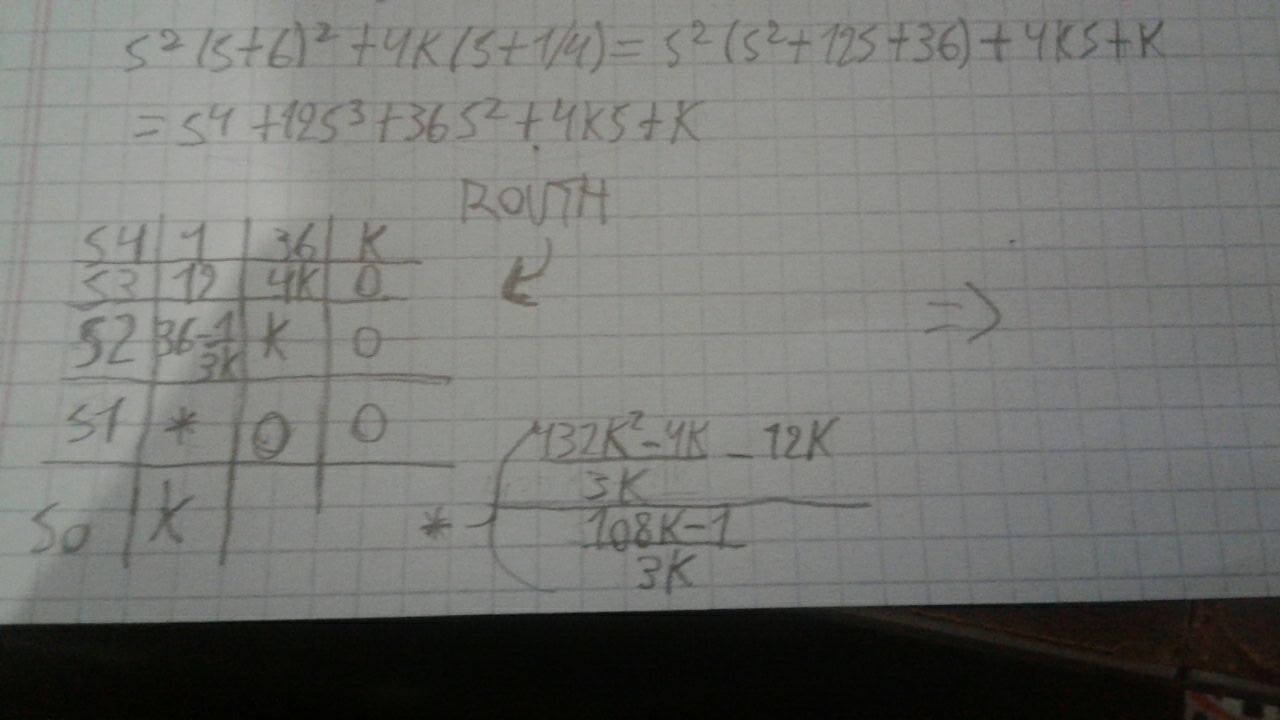 s² (s+6)² + 4K (s+1/4) = s² (s²+12s+36) + 4Ks+K
= s4 +12s³+36s²+4Ks+K
ROUTH
s4 1 36 K
s3 12 4K 0
s2 36-1/3K K 0
s1 * 0 0
s0 K
432K²-4K - 12K
3K
* 108K-1
3K
=>